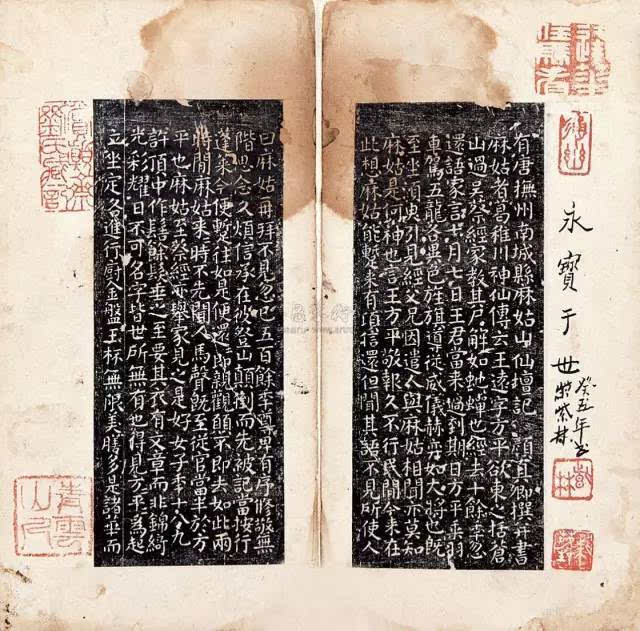 永寶于世
有唐撫州南城縣麻姑山仙壇記 顏真卿撰并書
麻姑者葛稚川神仙傳云王遠字方平欲東之括蒼
山過吳蔡經家教其尸解如蛇蟬也經去十餘年忽
還語家言七月七日王君當來過到期日方平乘羽
車駕五龍各異色旌旗導從威儀赫弈如大將也既
至坐須臾引見經父兄因遣人與麻姑相聞亦莫知
麻姑是何神也言王方平敬報久不行民間今來在
此想麻姑能蹔來有頃信還但聞其語不見所使人
曰麻姑再拜不見忽已五百餘年尊卑有序修敬無
階思念久煩信承在彼登山顛倒而先被記當按行
蓬萊今便蹔往如是便還還即親觀願不即去如此兩
將間麻姑來時不先聞人馬聲既至從官當半於方
平也麻姑至蔡經亦舉家見之是好女子年十八九
許頂中作髻餘髮垂之至要其衣有文章而非錦綺
光彩耀日不可名字皆世所無有也得見方平為起
立坐定各進行廚金盤玉杯無限美膳多是諸華而
青雲山人